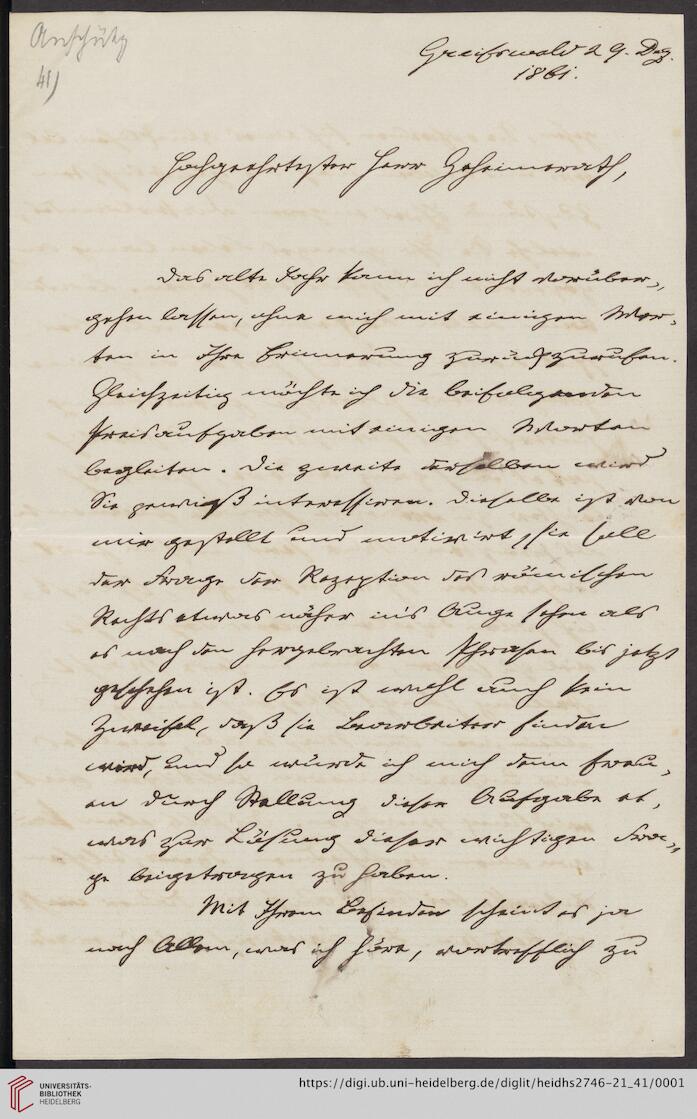 Anschütz
41)
Greifswald 29. Dez.
1861.
Hochgeehrtester Herr Geheimerath,
Das alte Jahr kann ich nicht vorüber-
gehen lassen, ohne mich mit einigen Wor-
ten in Ihre Erinnerung zurückzurufen.
Gleichzeitig möchte ich die beifolgenden
Preisaufgaben mit einigen Worten
begleiten. Die zweite derselben wird
Sie gewiß interessiren. Dieselbe ist von
mir gestellt und motivirt, sie soll
der Frage der Rezeption des römischen
Rechts etwas näher in's Auge sehen als
es nach den hergebrachten Phrasen bis jetzt
geschehen ist. Es ist wohl auch kein
Zweifel, daß sie Bearbeiter finden
wird, und so würde ich mich denn freu-
en durch Stellung dieser Aufgabe et-
was zur Lösung dieser wichtigen Fra-
ge beigetragen zu haben.
Mit Ihrem Befinden scheint es ja
nach Allem, was ich höre, vortrefflich zu
UNIVERSITÄTS-
BIBLIOTHEK
HEIDELBERG
https://digi.ub.uni-heidelberg.de/diglit/heidhs2746-21_41/0001